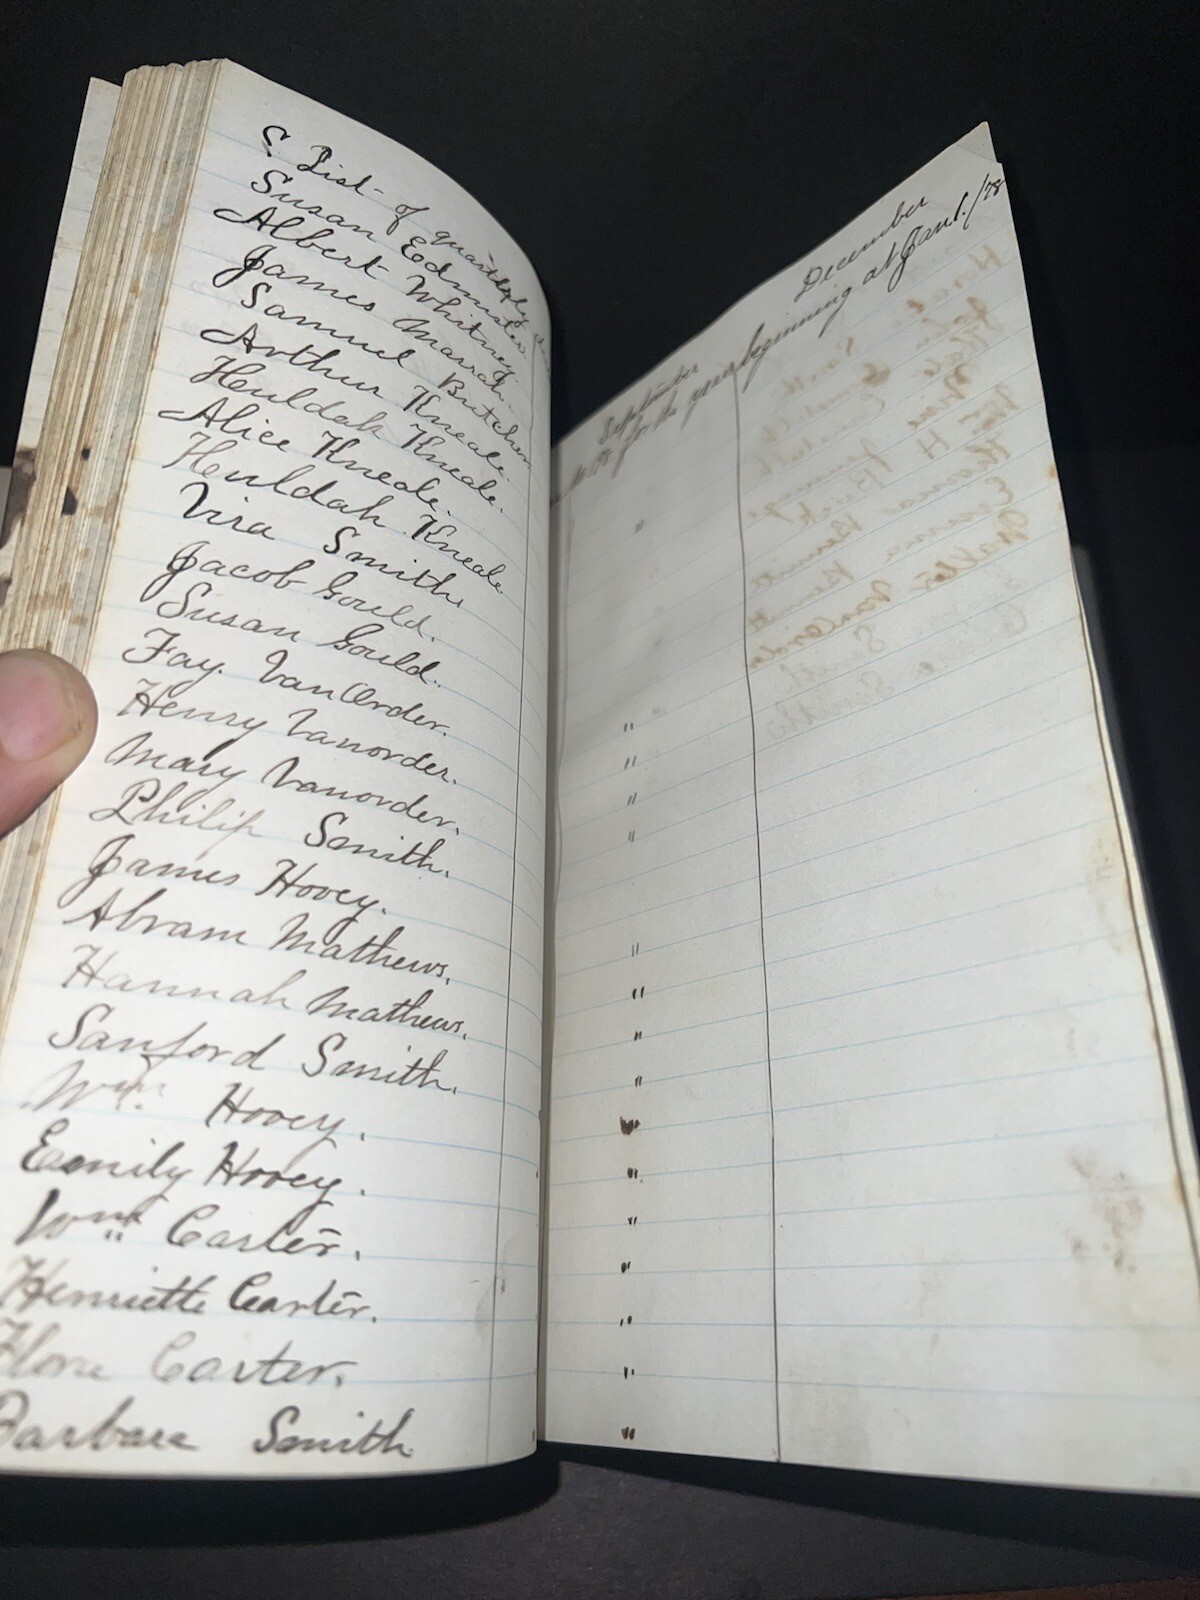 S. List of quarterly
Susan Edmister.
Albert Whitney.
James Marrah.
Samuel Butcher
Arthur Kneale.
Heuldah Kneale.
Alice Kneale.
Heuldah Kneale
Vira Smith.
Jacob Gould.
Susan Gould.
Fay. VanOrder.
Henry Vanorder.
Mary Vanorder.
Philip Smith.
James Hovey.
Abram Mathews.
Hannah Mathews.
Sanford Smith.
Wm. Hovey.
Emily Hovey.
Wm Carter.
Henriette Carter.
Flora Carter.
Barbara Smith
September
December
for the year beginning at Jan 1. /78
"
"
"
"
"
"
"
"
"
"
"
"
"
"
"
"